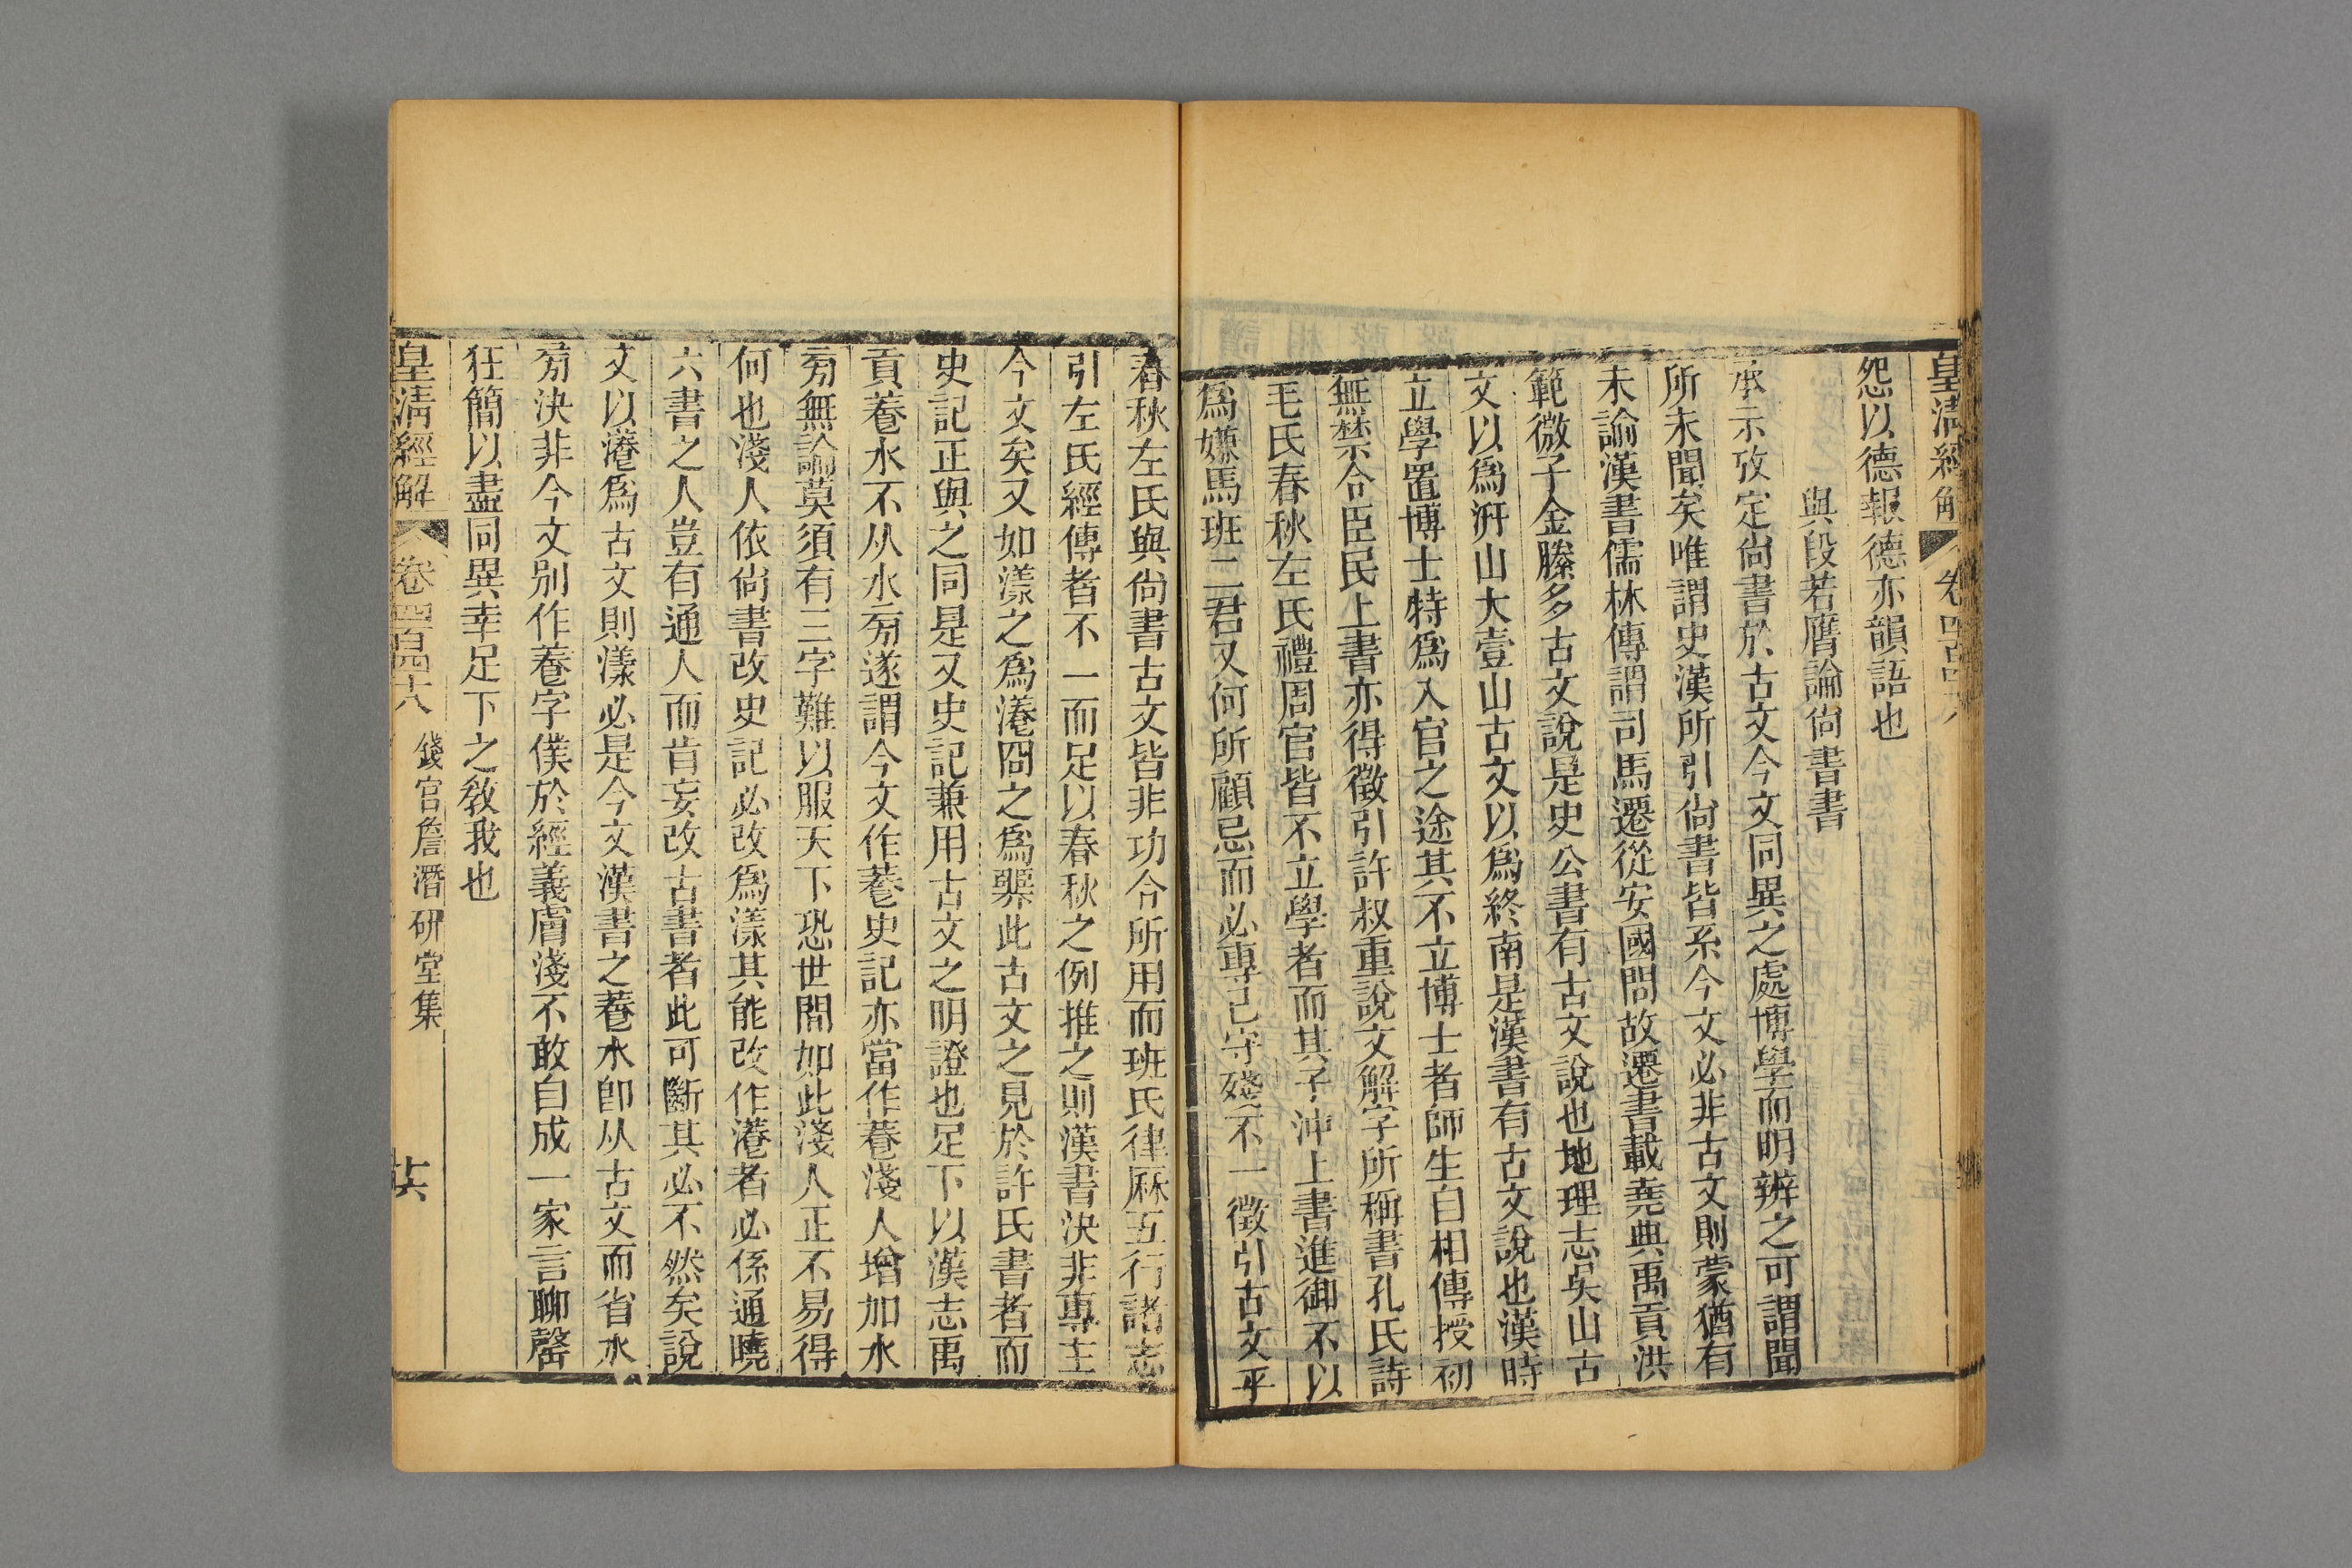 皇清經解 卷四百四十八
怨以德報德亦韻語也
與段若膺論尚書書
承示攷定尙書於古文今文同異之處博學而明辨之可謂聞
所未聞矣唯謂史漢所引尙書皆系今文必非古文則蒙猶有
未諭漢書儒林傳謂司馬遷從安國問故遷書載堯典禹貢洪
範微子金縢多古文說是史公書有古文說也地理志吳山古
文以爲汧山大壹山古文以爲終南是漢書有古文說也漢時
立學置博士特爲入官之途其不立博士者師生自相傳授初
無禁令臣民上書亦得徵引許叔重說文解字所稱書孔氏詩
毛氏春秋左氏禮周官皆不立學者而其子沖上書進御不以
爲嫌馬班二君又何所顧忌而必專己守殘不一徵引古文乎
春秋左氏與尙書古文皆非功令所用而班氏律厤五行諸志
引左氏經傳者不一而足以春秋之例推之則漢書決非專主
今文矣又如漾之爲瀁囧之爲臩此古文之見於許氏書者而
史記正與之同是又史記兼用古文之明證也足下以漢志禹
貢養水不从水旁遂謂今文作養史記亦當作養淺人增加水
旁無論莫須有三字難以服天下恐世間如此淺人正不易得
何也淺人依尙書改史記必改爲漾其能改作瀁者必係通曉
六書之人豈有通人而肯妄改古書者此可斷其必不然矣說
文以瀁爲古文則漾必是今文漢書之養水卽从古文而省水
旁決非今文別作養字僕於經義膚淺不敢自成一家言聊罄
狂簡以盡同異幸足下之敎我也
皇清經解 卷四百四十八 錢宮詹潛研堂集 共